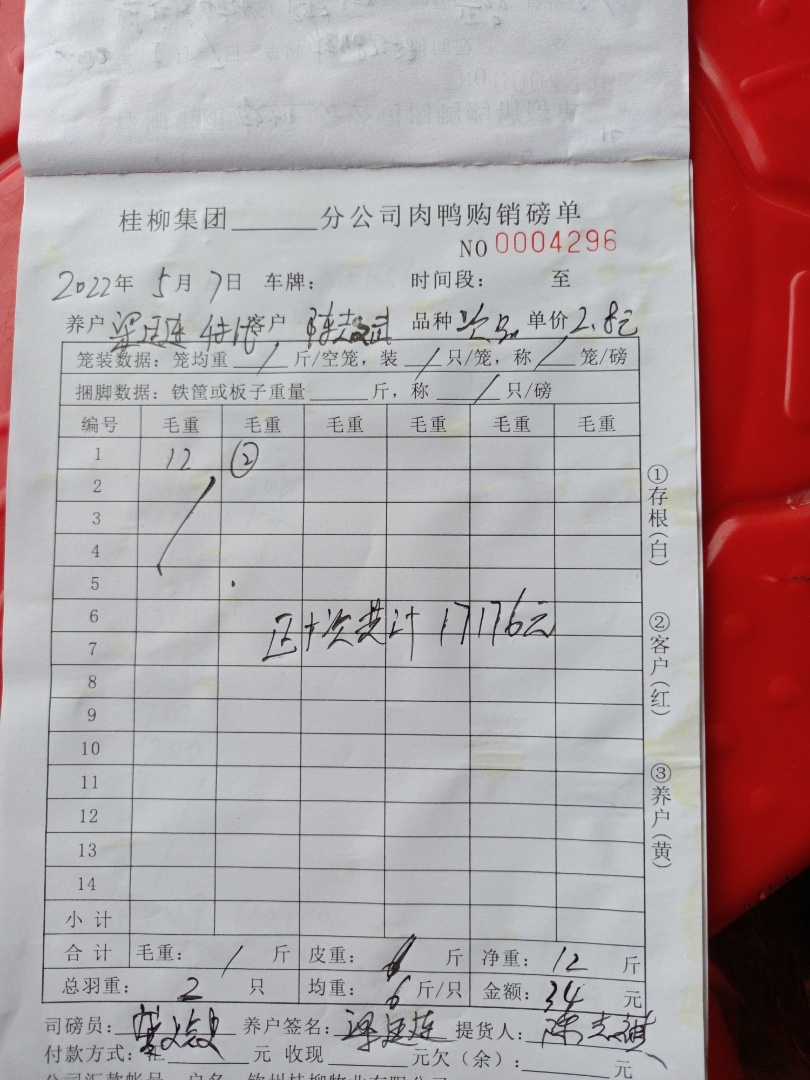 桂柳集团______分公司肉鸭购销磅单
NO 0004296
2022年 5月 7日 车牌： 时间段： 至
养户 梁 连 客户 陈志斌 品种 次品 单价 2.8元
笼装数据：笼均重 / 斤/空笼，装 / 只/笼，称 / 笼/磅
捆脚数据：铁筐或板子重量 斤，称 / 只/磅
编号 毛重 毛重 毛重 毛重 毛重 毛重
1 12 ②
2
3
4
5
6
正+次共计 17176元
7
8
9
10
11
12
13
14
小计
合计 毛重： / 斤 皮重： 斤 净重： 12 斤
总羽重： 2 只 均重： 6 斤/只 金额： 34 元
司磅员： 养户签名： 梁 连 提货人： 陈志斌
付款方式：汇 元 收现 元欠（余）： 元
公司汇款帐号 户名 钦州桂柳牧业有限公司
①存根（白）
②客户（红）
③养户（黄）